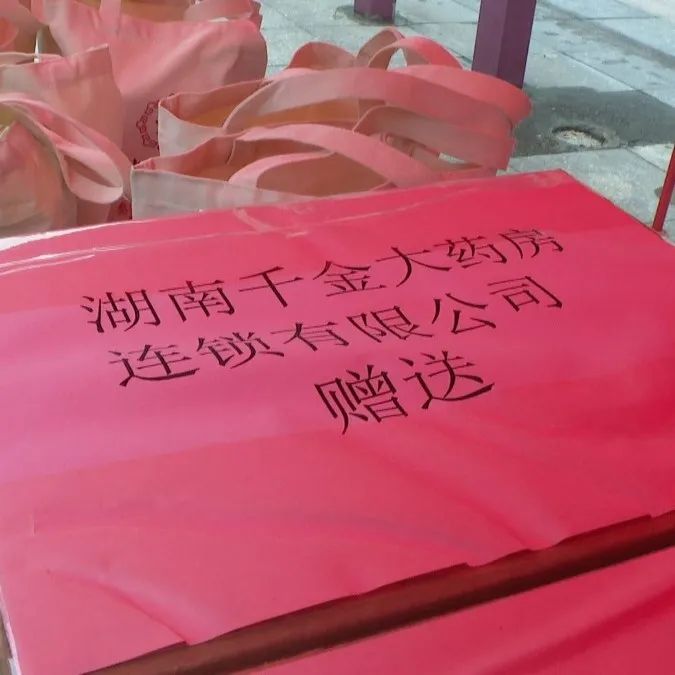 湖南千金大药房
连锁有限公司
赠送